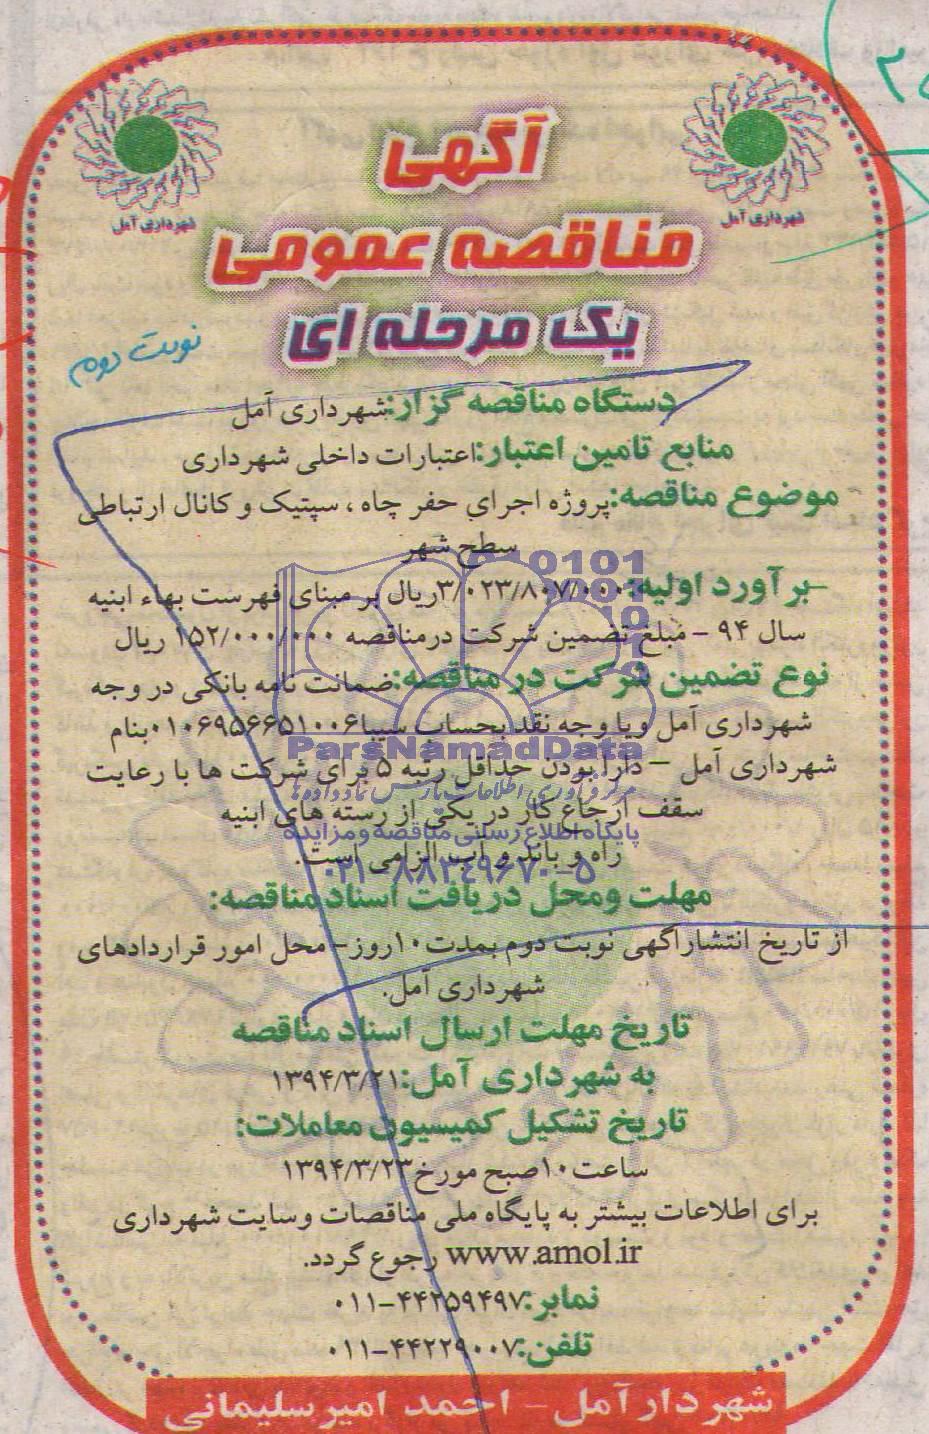 شهرداری آمل
شهرداری آمل
آگهی
مناقصه عمومی
یک مرحله ای
نوبت دوم
دستگاه مناقصه گزار:شهرداری آمل
منابع تامین اعتبار:اعتبارات داخلی شهرداری
موضوع مناقصه:پروژه اجرای حفر چاه ، سپتیک و کانال ارتباطی
سطح شهر
برآورد اولیه:۳/۰۲۳/۸۰۷/۰۰۰ریال بر مبنای فهرست بهاء ابنیه
سال ۹۴ - مبلغ تضمین شرکت درمناقصه ۱۵۲/۰۰۰/۰۰۰ ریال
نوع تضمین شرکت در مناقصه:ضمانت نامه بانکی در وجه
شهرداری آمل ویا وجه نقد بحساب سیبا۰۱۰۶۹۵۶۶۵۱۰۰۶بنام
ParsNamadData
شهرداری آمل –دارا بودن حداقل رتبه ۵ برای شرکت ها با رعایت
مرکز فرآوری اطلاعات پارس نماد داده ها
سقف ارجاع کار در یکی از رسته های ابنیه
پایگاه اطلاع رسانی مناقصه و مزایده
راه و باند و آب الزامی است.
۰۲۱-۸۸۳۴۹۶۷۰-۵
مهلت ومحل دریافت اسناد مناقصه:
از تاریخ انتشارآگهی نوبت دوم بمدت ۱۰روز- محل امور قراردادهای
شهرداری آمل.
تاریخ مهلت ارسال اسناد مناقصه
به شهرداری آمل:۱۳۹۴/۳/۲۱
تاریخ تشکیل کمیسیون معاملات:
ساعت ۱۰صبح مورخ ۱۳۹۴/۳/۲۳
برای اطلاعات بیشتر به پایگاه ملی مناقصات وسایت شهرداری
www.amol.ir رجوع گردد.
نمابر:۰۱۱-۴۴۲۵۹۴۹۷
تلفن:۰۱۱-۴۴۲۲۹۰۰۷
شهردار آمل - احمد امیرسلیمانی